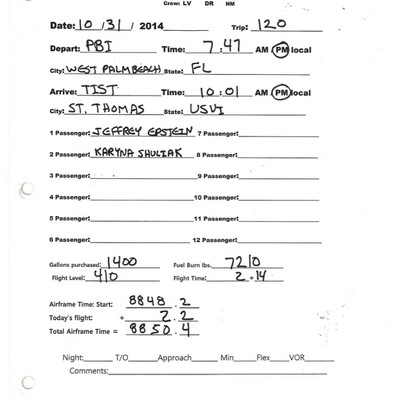 Crew: LV DR NM
Date: 10 / 31 / 2014 Trip: 120
Depart: PBI Time: 7 : 47 AM PM local
City: WEST PALM BEACH State: FL
Arrive: TIST Time: 10 : 01 AM PM local
City: ST. THOMAS State: USVI
1 Passenger: JEFFREY EPSTEIN 7 Passenger:
2 Passenger: KARYNA SHULIAK 8 Passenger:
3 Passenger: 9 Passenger:
4 Passenger: 10 Passenger:
5 Passenger: 11 Passenger:
6 Passenger: 12 Passenger:
Gallons purchased: 1400 Fuel Burn lbs. 7210
Flight Level: 410 Flight Time: 2 + 14
Airframe Time: Start: 8848 . 2
Today's flight: + 2 . 2
Total Airframe Time = 8850 . 4
Night: T/O Approach Min Flex VOR
Comments: